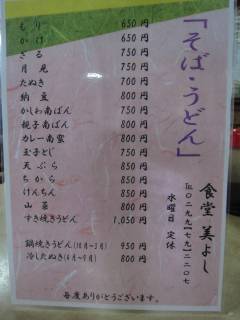 「そば・うどん」
もり 650円
かけ 650円
ざる 750円
月見 750円
たぬき 700円
納豆 800円
かしわ南ばん 750円
親子南ばん 800円
カレー南蛮 800円
玉子とじ 750円
天ぷら 850円
ちから 850円
けんちん 850円
山菜 800円
すき焼きうどん 1,050円
鍋焼きうどん(10月～3月) 950円
冷したぬき(6月～9月) 800円
毎度ありがとうございます。
食堂 美よし
TEL 0299(79)2207
水曜日 定休